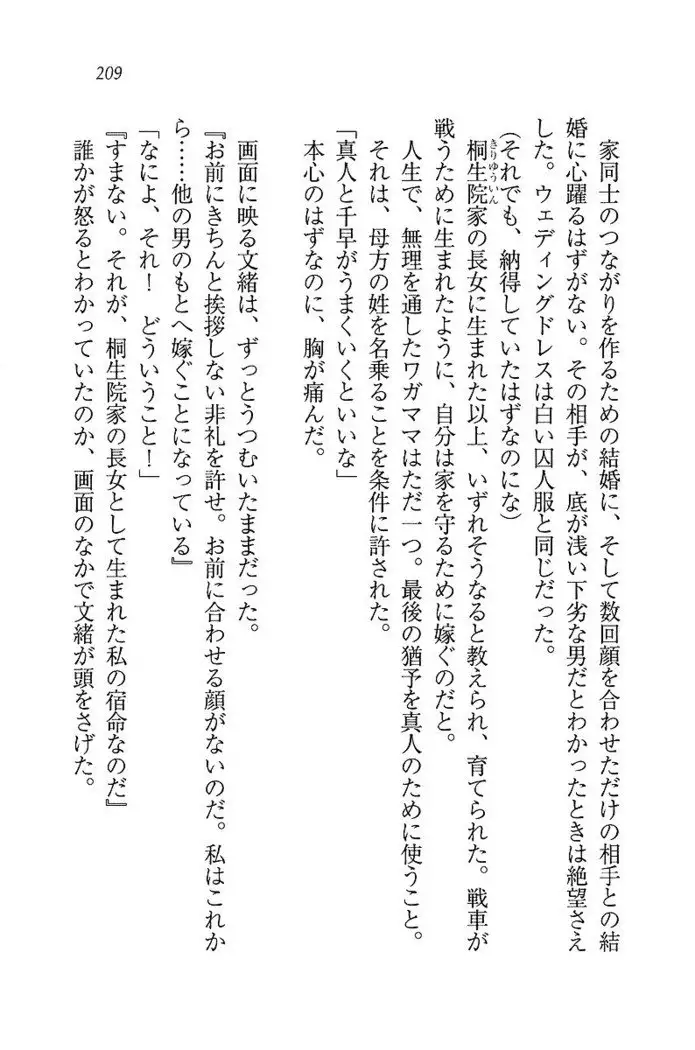 209
家同士のつながりを作るための結婚に、そして数回顔を合わせただけの相手との結
婚に心躍るはずがない。その相手が、底が浅い下劣な男だとわかったときは絶望さえ
した。ウェディングドレスは白い囚人服と同じだった。
(それでも、納得していたはずなのにな)
桐生院家の長女に生まれた以上、いずれそうなると教えられ、育てられた。戦車が
きりゆういん
戦うために生まれたように、自分は家を守るために嫁ぐのだと。
人生で、無理を通したワガママはただ一つ。最後の猶予を真人のために使うこと。
それは、母方の姓を名乗ることを条件に許された。
「真人と千早がうまくいくといいな」
本心のはずなのに、胸が痛んだ。
画面に映る文緒は、ずっとうつむいたままだった。
『お前にきちんと挨拶しない非礼を許せ。お前に合わせる顔がないのだ。私はこれか
ら……他の男のもとへ嫁ぐことになっている』
「なによ、それ！　どういうこと！」
『すまない。それが、桐生院家の長女として生まれた私の宿命なのだ』
誰かが怒るとわかっていたのか、画面のなかで文緒が頭をさげた。